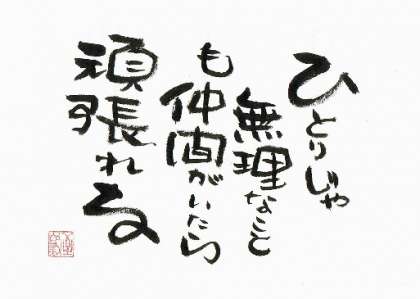 ひとりじゃ
無理なこと
も仲間がいたら
頑張れる